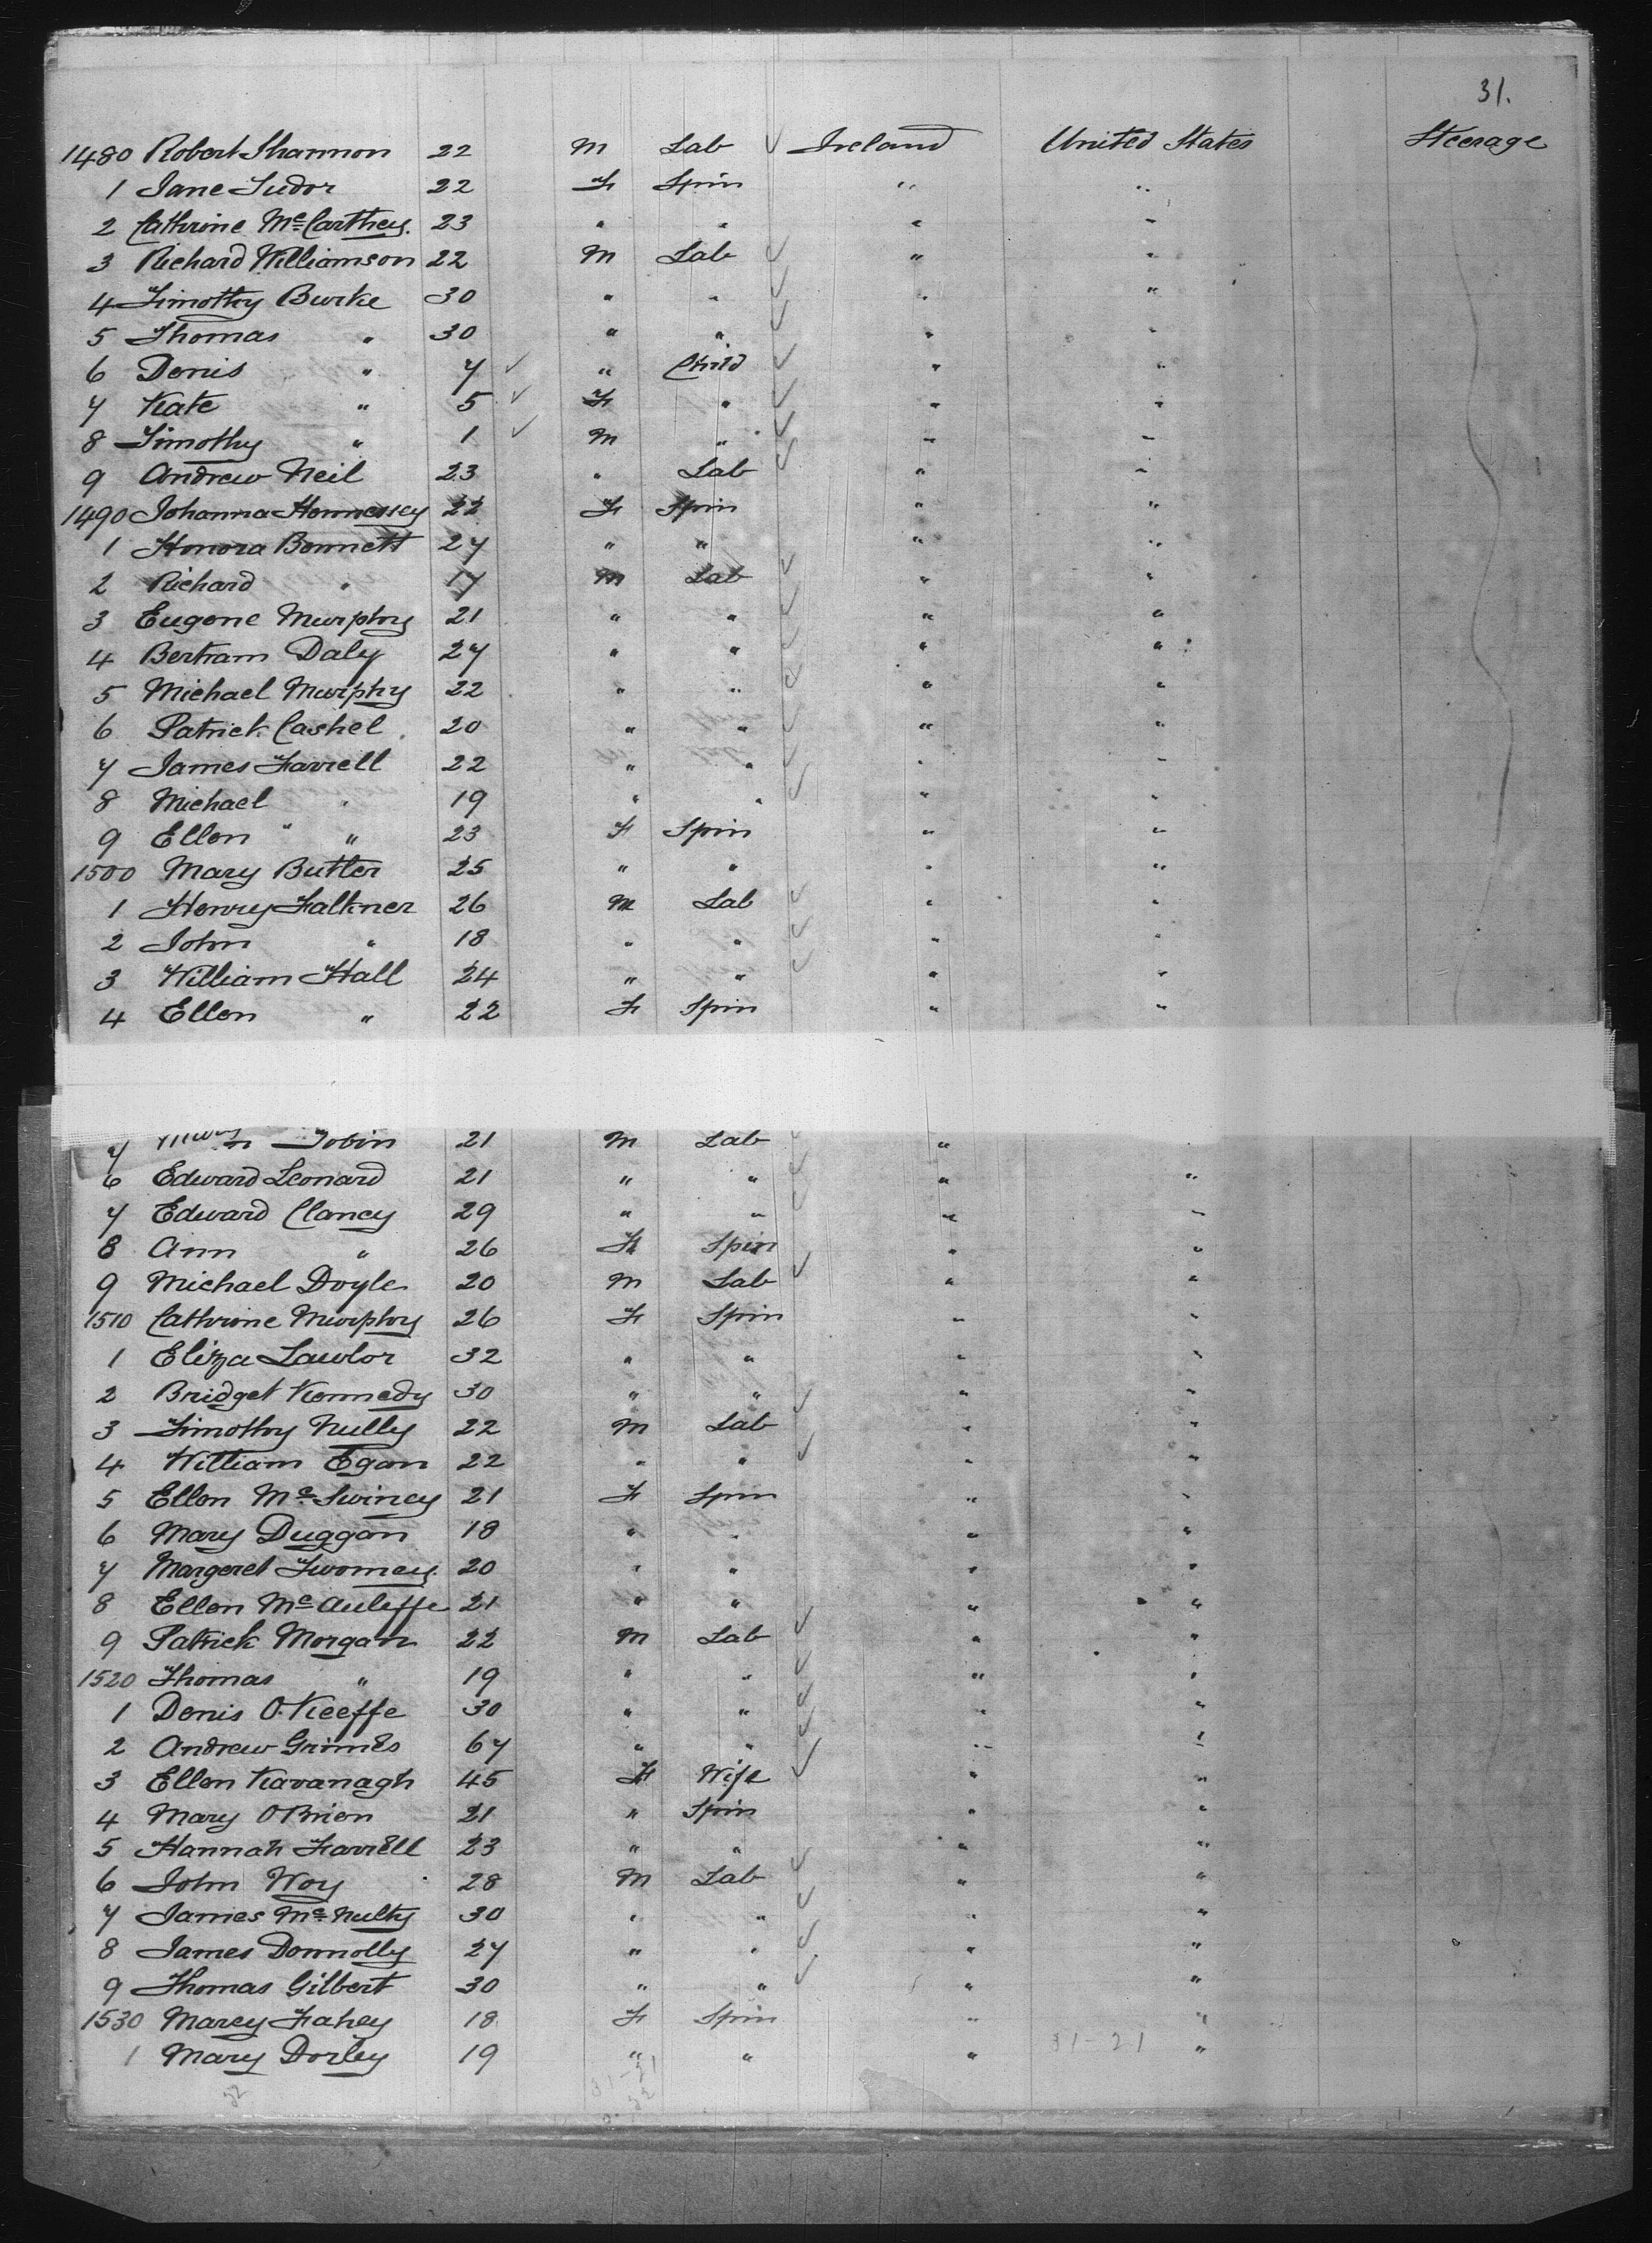 31.
1480 Robert Shannon 22 M Lab ✓ Ireland United States Steerage
1 Jane Tudor 22 F Spin " "
2 Cathrine McCarthey. 23 " " " "
3 Richard Williamson 22 M Lab ✓ " "
4 Timothy Burke 30 " " ✓ " "
5 Thomas " 30 " " ✓ " "
6 Denis " 7 ✓ " Child ✓ " "
7 Kate " 5 ✓ F " ✓ " "
8 Timothy " 1 ✓ M " ✓ " "
9 Andrew Neil 23 " Lab ✓ " "
1490 Johanna Hennessey 22 F Spin " "
1 Honora Bennett 27 " " " "
2 Richard " 17 M Lab ✓ " "
3 Eugene Murphy 21 " " ✓ " "
4 Bertram Daly 27 " " ✓ " "
5 Michael Murphy 22 " " ✓ " "
6 Patrick Cashel 20 " " ✓ " "
7 James Farrell 22 " " ✓ " "
8 Michael " 19 " " ✓ " "
9 Ellen " 23 F Spin " "
1500 Mary Butler 25 " " " "
1 Henry Falkner 26 M Lab ✓ " "
2 John " 18 " " ✓ " "
3 William Hall 24 " " ✓ " "
4 Ellen " 22 F Spin " "
Tobin 21 M Lab "
6 Edward Leonard 21 " " ✓ " "
7 Edward Clancy 29 " " ✓ " "
8 Ann " 26 F Spin " "
9 Michael Doyle 20 M Lab ✓ " "
1510 Cathrine Murphy 26 F Spin " "
1 Eliza Lawlor 32 " " " "
2 Bridget Kennedy 30 " " " "
3 Timothy Nully 22 M Lab ✓ " "
4 William Egan 22 " " ✓ " "
5 Ellen McSwiney 21 F Spin " "
6 Mary Duggan 18 " " " "
7 Margeret Twomey 20 " " " "
8 Ellen McAuleffe 21 " " " "
9 Patrick Morgan 22 M Lab ✓ " "
1520 Thomas " 19 " " ✓ " "
1 Denis O'Keeffe 30 " " ✓ " "
2 Andrew Grimes 67 " " ✓ " "
3 Ellen Kavanagh 45 F Wife ✓ " "
4 Mary O'Brien 21 " Spin " "
5 Hannah Farrell 23 " " " "
6 John Woy 28 M Lab ✓ " "
7 James McNulty 30 " " ✓ " "
8 James Donnolly 27 " " ✓ " "
9 Thomas Gilbert 30 " " ✓ " "
1530 Marey Fahey 18 F Spin " "
1 Mary Dorley 19 " " " 31-21 "
31-21